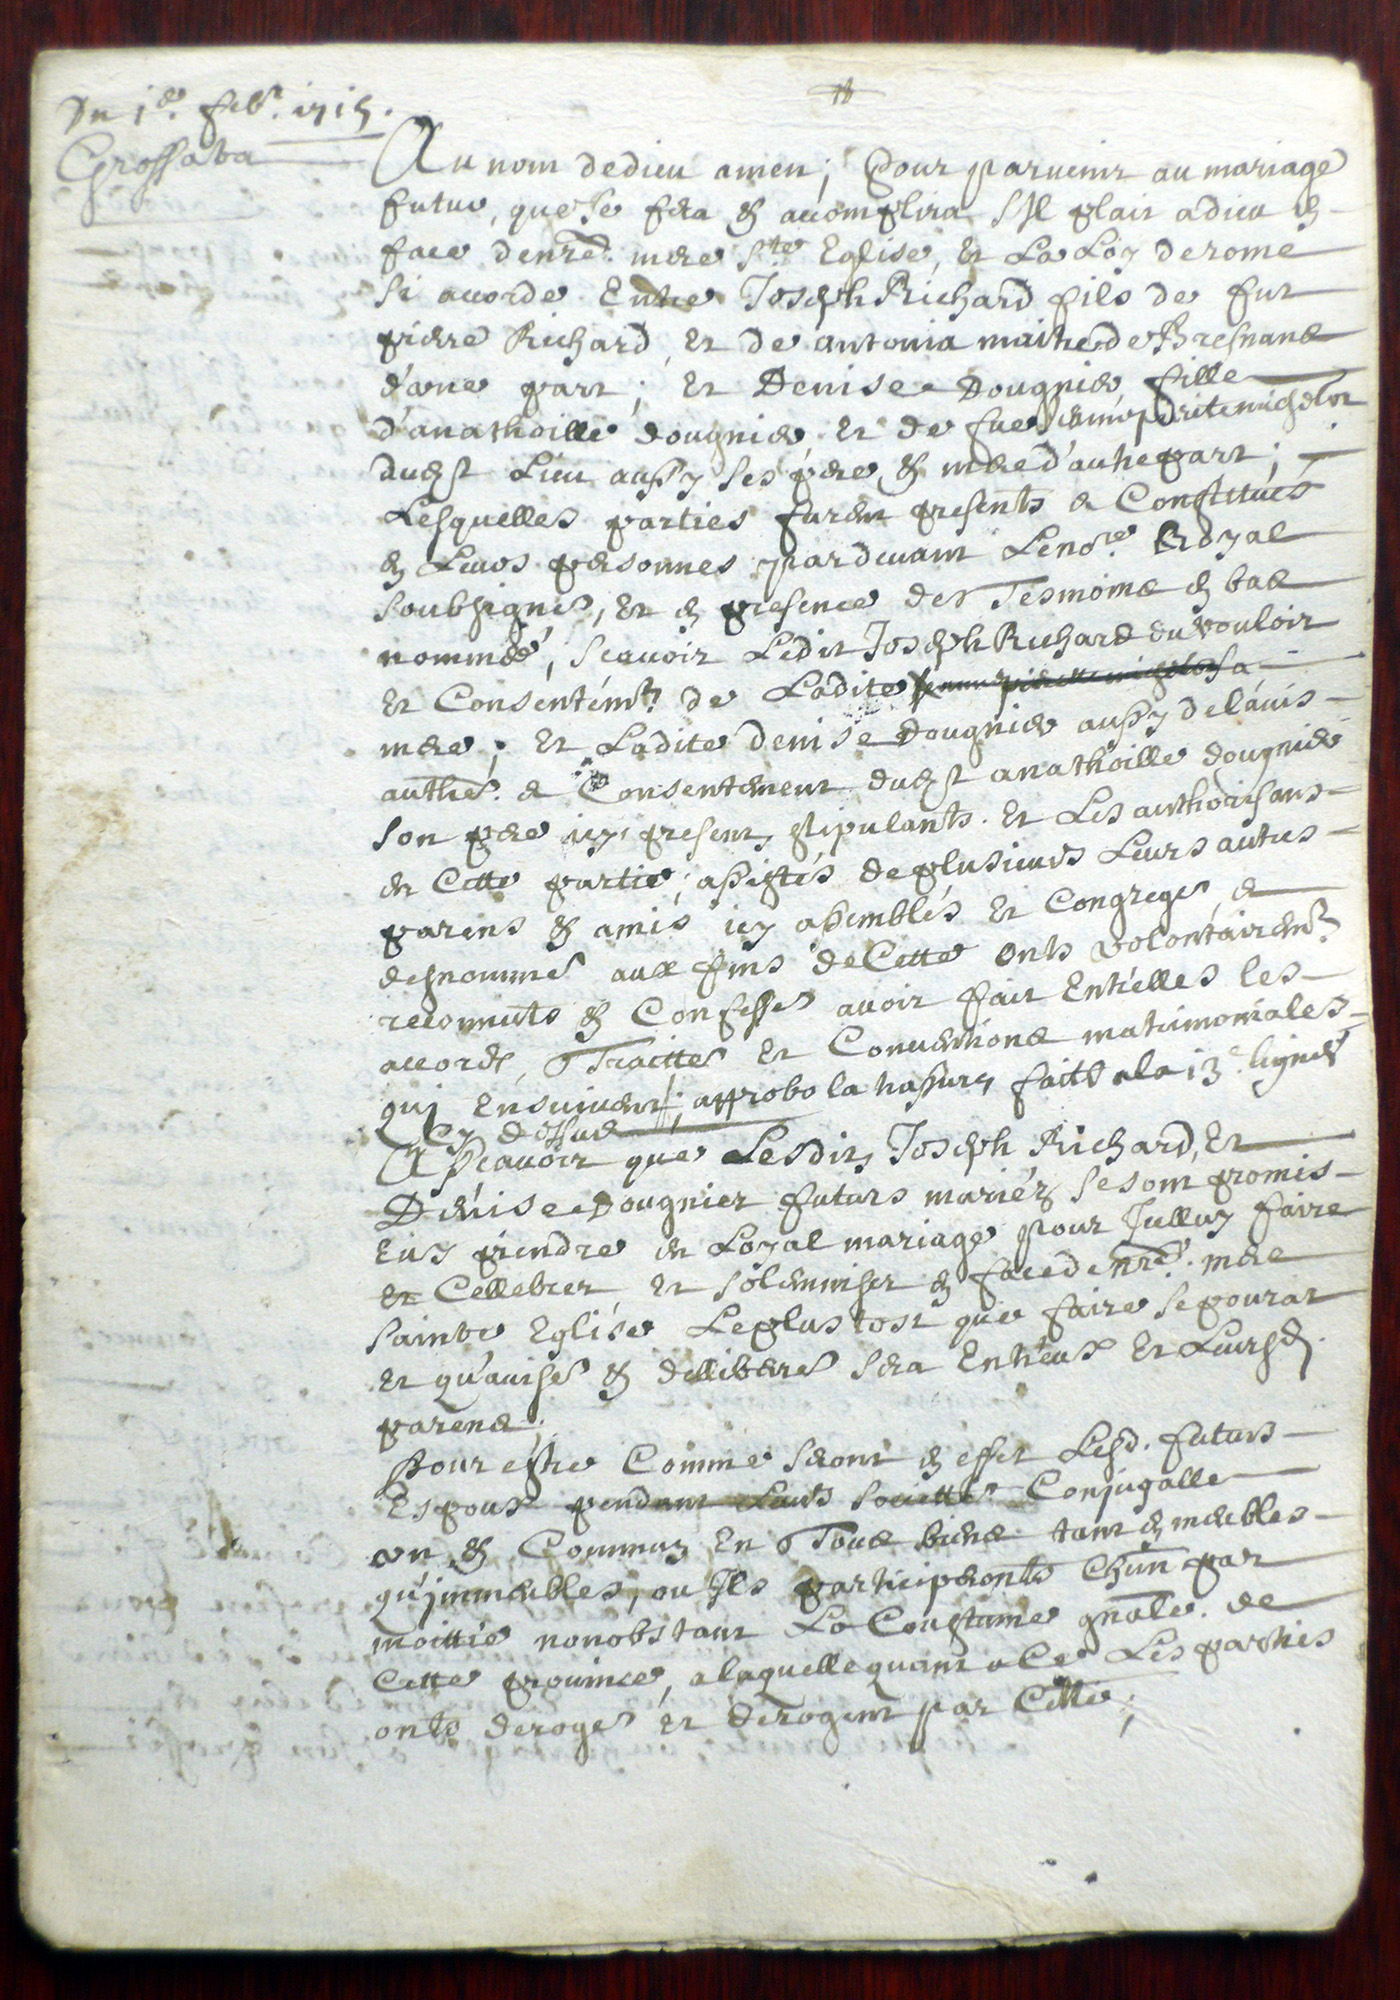 Du 1er. febr. 1715.
Grossata
Au nom dedieu amen; Pour paruenir au mariage
futur, que se fera & accomplira s'Il plait a dieu en
face denre. mere Ste Eglise, Et La Loy derome
si accorde Entre Joseph Richard fils de fut
pierre Richard, Et de antonia maitre de
d'une part; Et Denise Dougnier fille
d'anathoille dougnier Et de fue
dudit Lieu aussy ses pere & mere d'autre part;
Lesquelles parties furent presents et Constitués
en Leurs personnes pardeuant Lenore. Royal
soubsignés, Et en presence des Tesmoins en bas
nommés, scauoir Ledit Joseph Richard du vouloir
Et Consentemt. de Ladite sa
mere; Et Ladite denise Dougnier aussy delauis
authé. et Consentement dudit anathoille dougnier
son pere icy present, stipulants Et Les authorisans
en Cette partie; assistés deplusieurs Leurs autres
parens & amis icy assemblés Et Congregés, et
desnommés aux fins deCette Onts volontairemt.
reconnuts & Confessés avoir fait Entrelles les
accords, Traittés Et Conuentions matrimoniales
qui Ensuiuent; approbo la rassure faitte ala 13e. lignes
cy dessus
Ascauoir que Lesdits Joseph Richard, Et
Denise Dougnier futurs mariéz se sont promis
Eux prendre en Loyal mariage pour Jcelluy faire
Et Cellebrer Et solemniser en facedenre. mere
sainte Eglise Leplustost que faire sepourat
Et qu'auisés & dellibérés sera Entreux Et Leursd.
parens;
Pour estre Comme seront en effet Lesd. futurs
Espoux pendant Leurs societté Conjugalle
vn & Communs En Tous biens tant en meubles
qu'jmmeubles, ou Ils participeronts Chun par
moittié nonobstant La Coustume gnale. de
Cette prouince, alaquelle quant a Ce Les parties
onts derogés Et derogent par Cette;